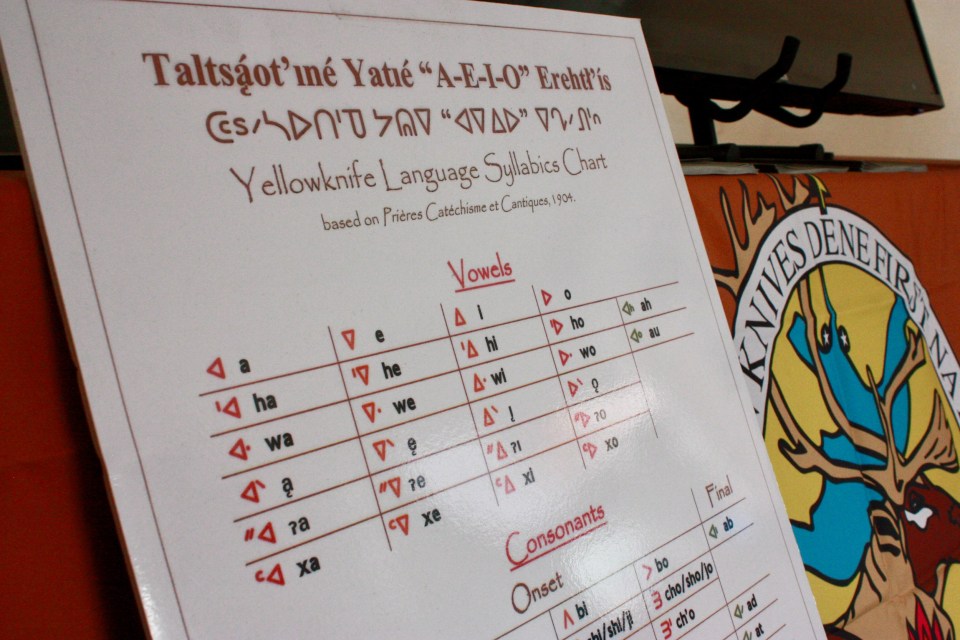 Taltsą́ot’ıné Yatıé “A-E-I-O” Erehtł’ís
Yellowknife Language Syllabics Chart
based on Prières Catéchisme et Cantiques, 1904.
Vowels
ᐊ a ᐁ e ᐃ I ᐅ o ah
ᑊᐊ ha ᑊᐁ he ᑊᐃ hi ᑊᐅ ho au
ᐊᐧ wa ᐁᐧ we ᐃᐧ wi ᐅᐧ wo
ᐊᐠ ą ᐁᐠ ę ᐃᐠ į ᐅᐠ ǫ
ᐥᐊ ʔa ᐥᐁ ʔe ᐥᐃ ʔı ᐥᐅ ʔo
ᑦᐊ xa ᑦᐁ xe ᑦᐃ xI ᑦᐅ xo
Consonants
Onset Final
ᐱ bi ᐳ bo ab
chi/shi/jI cho/sho/jo
ch'o ad
at
KNIVES DENE FIRST NA